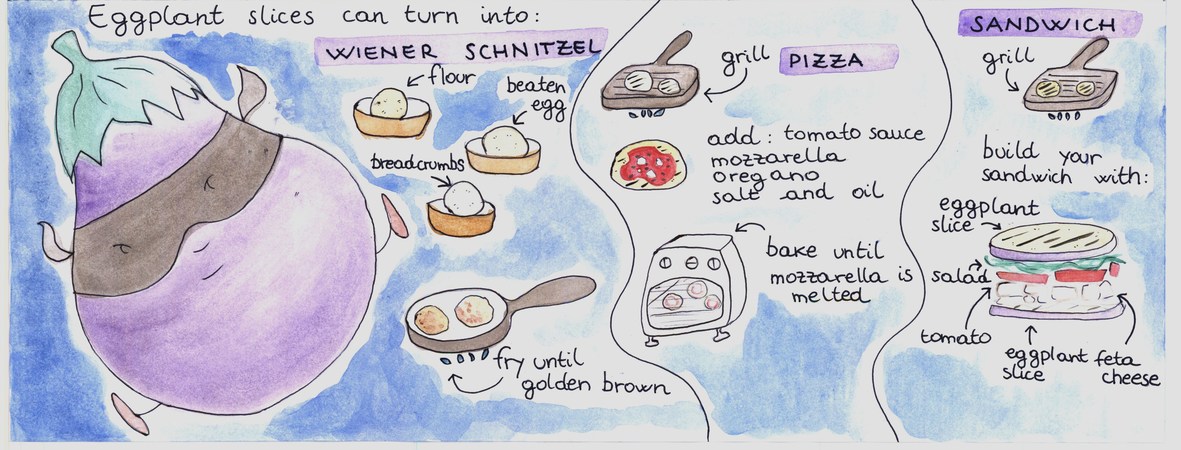 Eggplant slices can turn into:
WIENER SCHNITZEL
flour
beaten
egg
breadcrumbs
fry until
golden brown
grill
PIZZA
add: tomato sauce
mozzarella
oregano
salt and oil
bake until
mozzarella is
melted
SANDWICH
grill
build your
sandwich with:
eggplant
slice
salad
tomato
eggplant
slice
feta
cheese